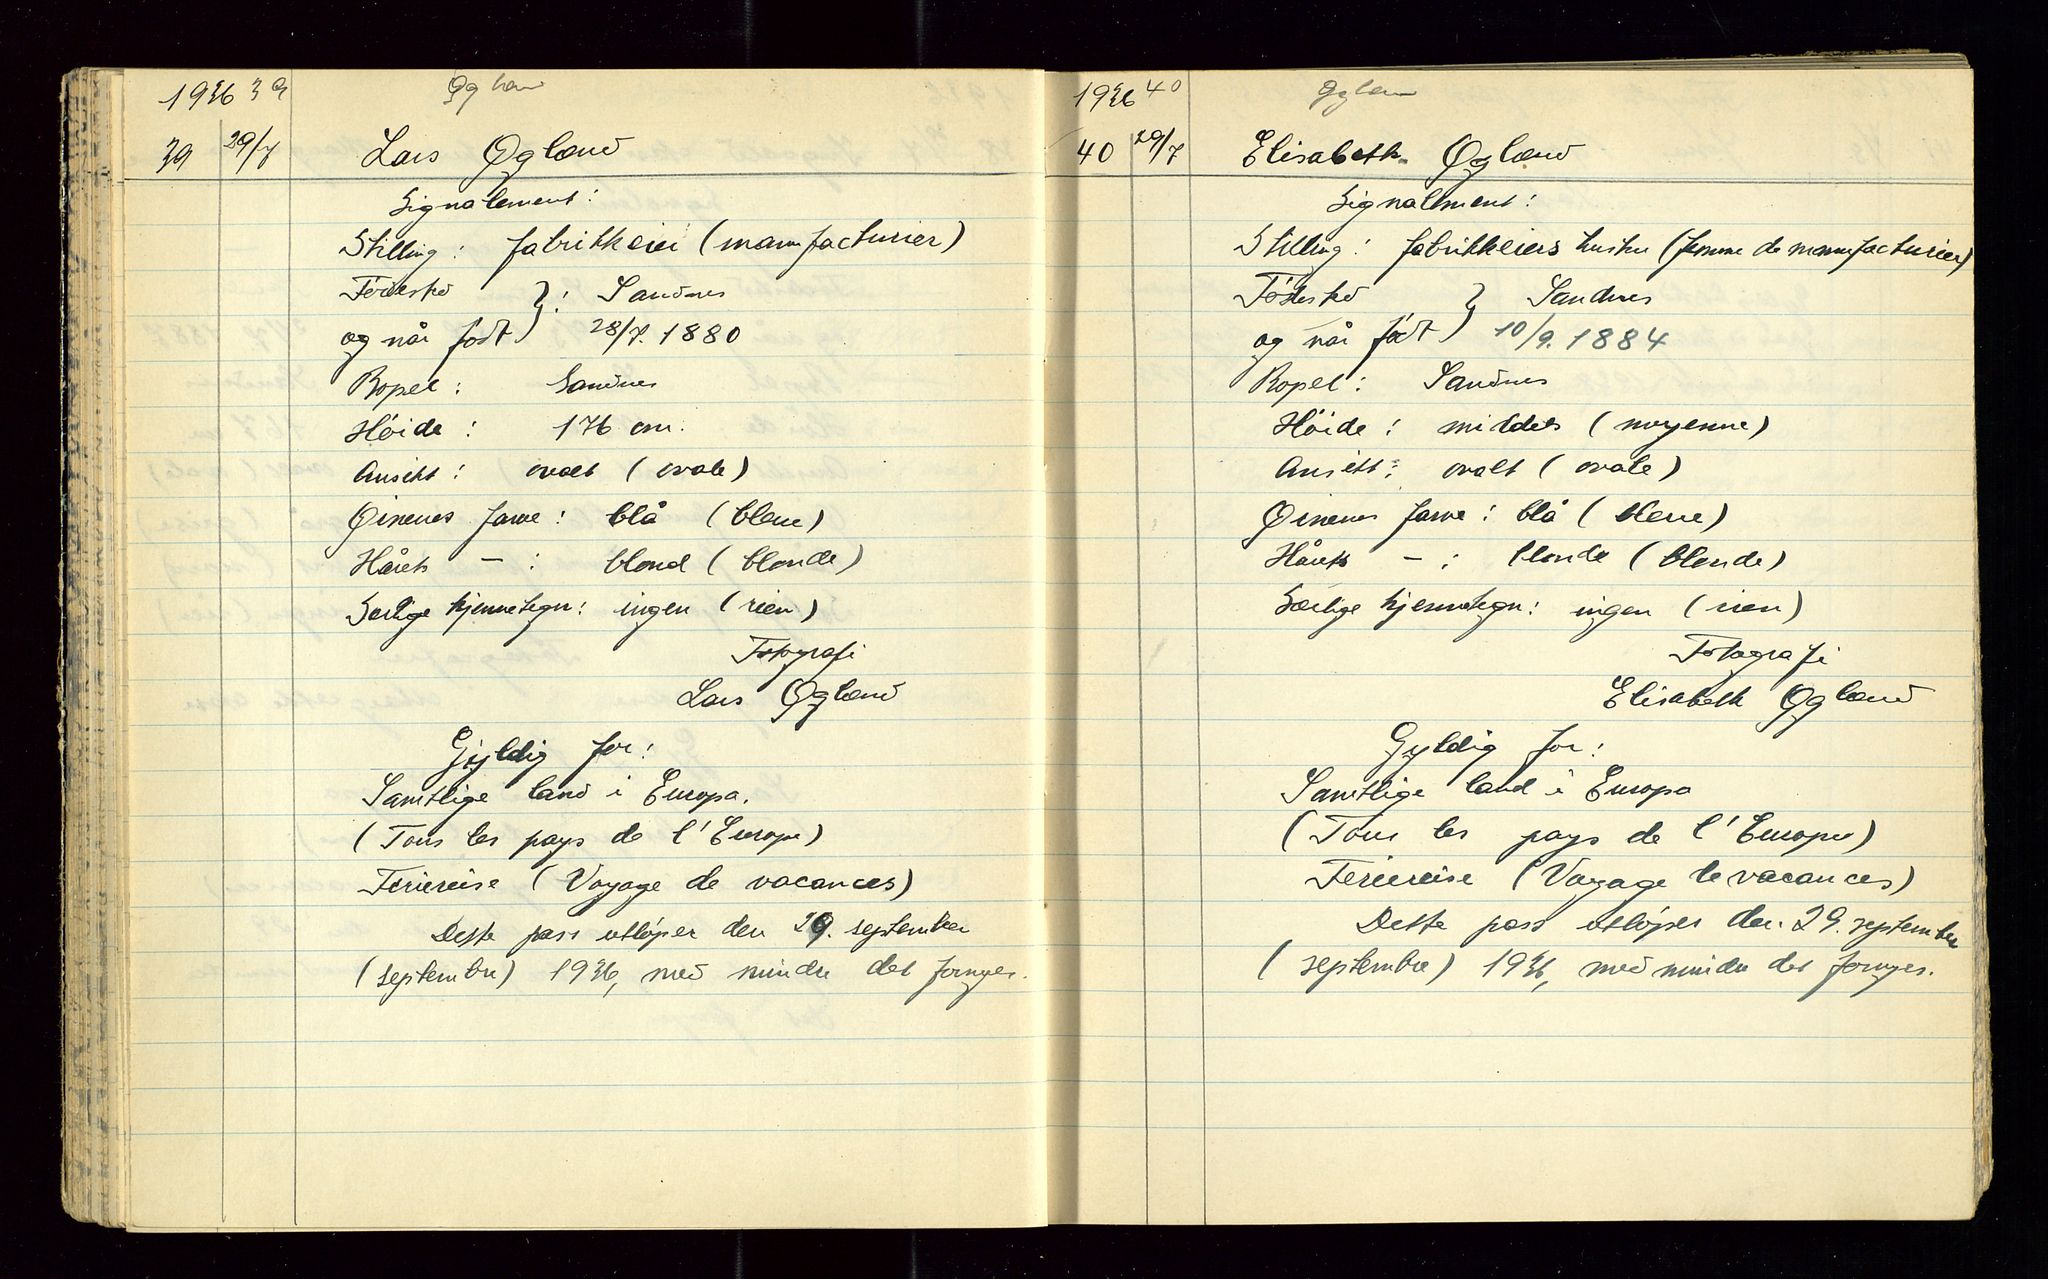 1936 39 Øglænd
39 29/7 Lars Øglænd
Signalement:
Stilling: fabrikkeier (manufacturier)
Fødested } : Sandnes
og når født } 28/7. 1880
Bopel: Sandnes
Høide: 176 cm.
Ansikt: ovalt (ovale)
Øinenes farve: blå (bleue)
Hårets — : blond (blonde)
Særlige kjennetegn: ingen (rien)
Fotografi
Lars Øglænd
Gyldig for:
Samtlige land i Europa.
(Tous les pays de l'Europe)
Feriereise (Voyage de vacances)
Dette pass utløper den 29. september
(septembre) 1936, med mindre det fornyes.
1936 40 Øglænd
40 29/7 Elisabeth Øglænd
Signalment:
Stilling: fabrikkeiers hustru (femme de manufacturier)
Fødested } Sandnes
og når født } 10/9. 1884
Bopel: Sandnes
Høide: middels (moyenne)
Ansikt: ovalt (ovale)
Øinenes farve: blå (bleue)
Hårets — : blonde (blonde)
Særlige kjennetegn: ingen (rien)
Fotografi
Elisabeth Øglænd
Gyldig for:
Samtlige land i Europa
(Tous les pays de l'Europe)
Feriereise (Voyage de vacances)
Dette pass utløper den 29. september
(septembre) 1936, med mindre det fornyes.